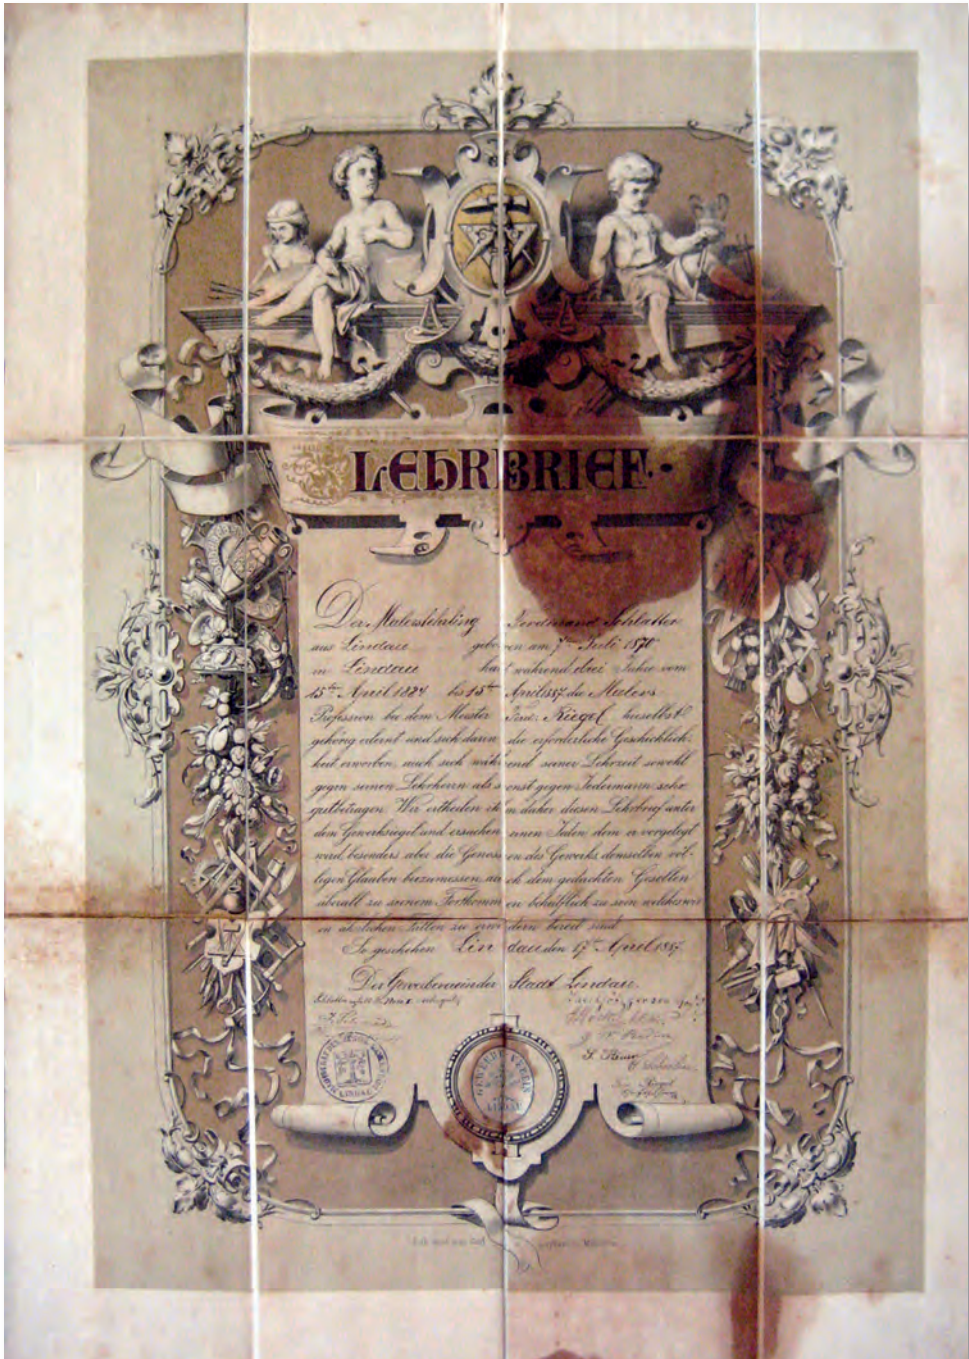 LEHRBRIEF.
Der Malerslehrling Ferdinand Schlatter
aus Lindau geboren am 7ten Juli 1870
in Lindau hat während drei Jahre vom
15ten April 1884 bis 15ten April 1887 die Malers
Profession bei dem Meister Ferd. Riegel hieselbst
gehörig erlernt und sich darin die erforderliche Geschicklich-
keit erworben, auch sich während seiner Lehrzeit sowohl
gegen seinen Lehrherrn als sonst gegen Jedermann sehr
gut betragen. Wir ertheilen ihm daher diesen Lehrbrief unter
dem Gewerksiegel und ersuchen einen Jeden dem er vorgelegt
wird, besonders aber die Genossen des Gewerks, demselben völ-
ligen Glauben beizumessen, auch dem gedachten Gesellen
überall zu seinem Fortkommen behülflich zu sein welches wir
in ähnlichen Fällen zu erwidern bereit sind
So geschehen Lindau den 17ten April 1887
Der Gewerbeverein der Stadt Lindau.
GEWERBE VEREIN
LINDAU
LINDAU